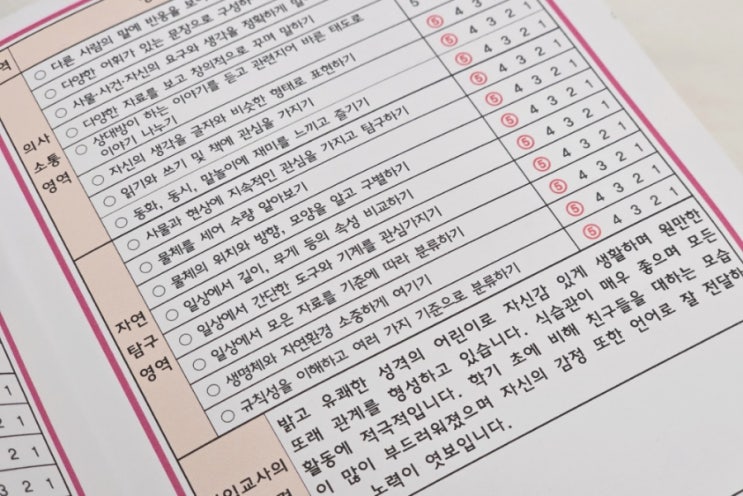 다른 사람의 말에 반응을 보
다양한 어휘가 있는 문장으로 구성하
사물·사건·자신의 요구와 생각을 정확하게 말
다양한 자료를 보고 창의적으로 꾸며 말하기
상대방이 하는 이야기를 듣고 관련지어 바른 태도로
이야기 나누기
자신의 생각을 글자와 비슷한 형태로 표현하기
읽기와 쓰기 및 책에 관심을 가지기
동화, 동시, 말놀이에 재미를 느끼고 즐기기
의사
소통
영역
사물과 현상에 지속적인 관심을 가지고 탐구하기
물체를 세어 수량 알아보기
물체의 위치와 방향, 모양을 알고 구별하기
일상에서 길이, 무게 등의 속성 비교하기
일상에서 간단한 도구와 기계를 관심가지기
일상에서 모은 자료를 기준에 따라 분류하기
생명체와 자연환경 소중하게 여기기
규칙성을 이해하고 여러 가지 기준으로 분류하기
자연
탐구
영역
5 4 3 2 1
5 4 3 2 1
5 4 3 2 1
5 4 3 2 1
5 4 3 2 1
5 4 3 2 1
5 4 3 2 1
5 4 3 2 1
5 4 3 2 1
5 4 3 2 1
5 4 3 2 1
5 4 3 2 1
밝고 유쾌한 성격의 어린이로 자신감 있게 생활하며 원만한
또래 관계를 형성하고 있습니다. 식습관이 매우 좋으며 모든
활동에 적극적입니다. 학기 초에 비해 친구들을 대하는 모습
이 많이 부드러워졌으며 자신의 감정 또한 언어로 잘 전달하
노력이 엿보입니다.
임교사의
1
1
2 1
3 2 1